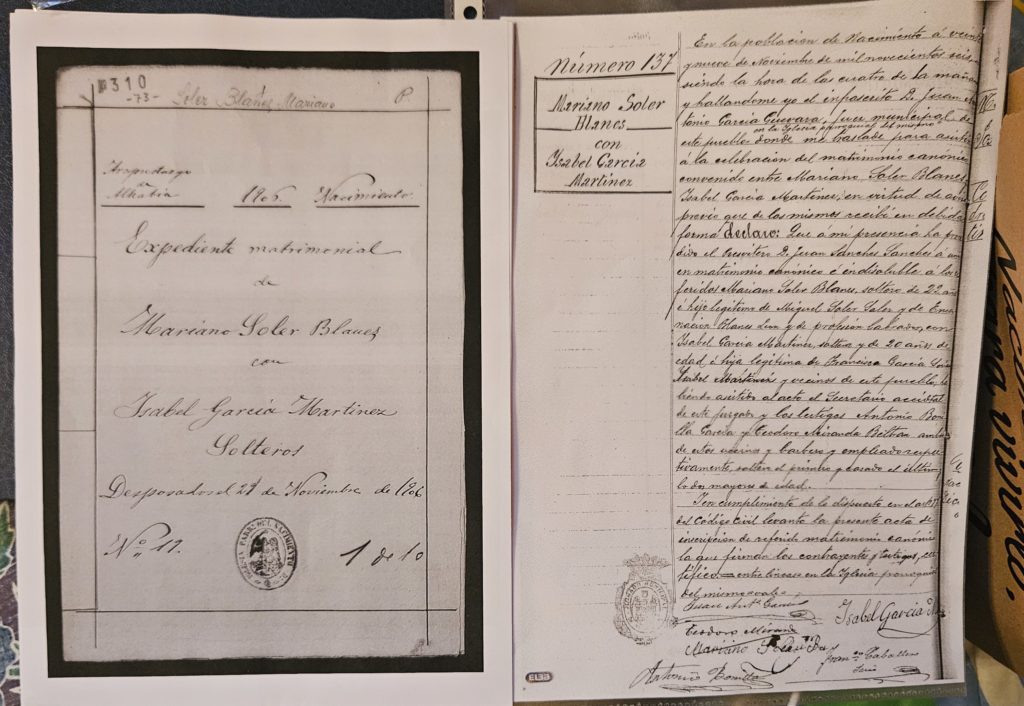 310
-73-
Soler Blañez Mariano P.
Alhabia 1906 Nacimiento
Expediente matrimonial
de
Mariano Soler Blanez
con
Isabel García Martinez
Solteros
Desposados el 29 de Noviembre de 1906
Nº 11. 1 de 10
Número 137
Mariano Soler
Blanes
con
Isabel García
Martínez
En la población de Nacimiento á
nueve de Noviembre de mil novecientos seis
siendo la hora de las cuatro de la
y hallandome yo el infrascrito D. Juan
tonio García Guevara, juez municipal de
en la Iglesia parroquial del mismo
este pueblo donde me traslade para
á la celebración del matrimonio canónico
convenido entre Mariano Soler Blanes
Isabel García Martinez, en virtud de
previo que de los mismos recibí en debida
forma declaro: Que á mi presencia ha
dido el Presbitero D. Juan Sanches Sanches á
en matrimonio canónico é indisoluble á los
feridos Mariano Soler Blanes, soltero de 22
é hijo legitimo de Miguel Soler Soler y de
nación Blanes y de profesión labrador, con
Isabel García Martinez, soltera y de 20 años de
edad é hija legítima de Francisco García
Isabel Martinez y vecinos de este pueblo,
biendo asistido al acto el Secretario
de este juzgado y los testigos Antonio
lla García y Teodoro Miranda Beltran
de estos vecinos y barbero y empleado
tivamente, soltero el primero y casado el
los dos mayores de edad.
I en cumplimiento de lo dispuesto en el
del Código Civil levanto la presente acta de
inscripción de referido matrimonio
la que firman los contrayentes y testigos,
tifico = entre lineas en la Iglesia parroquial
del mismo vale
Isabel García
Teodoro Miranda
Mariano
Caballero
Antonio Bonilla
ELBA